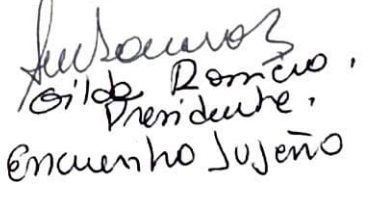 Gilda Romero.
Presidente.
Encuentro Jujeño